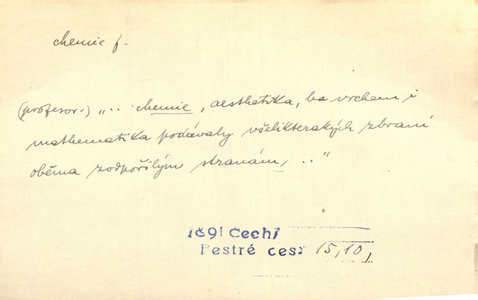 chemie f.
(profesor:) „.. chemie, aesthetika, ba vrchem i
mathematika podávaly všelikterakých zbraní
oběma zodpořilým stranám, .."
1891 Čech1
Pestré cest 15,10